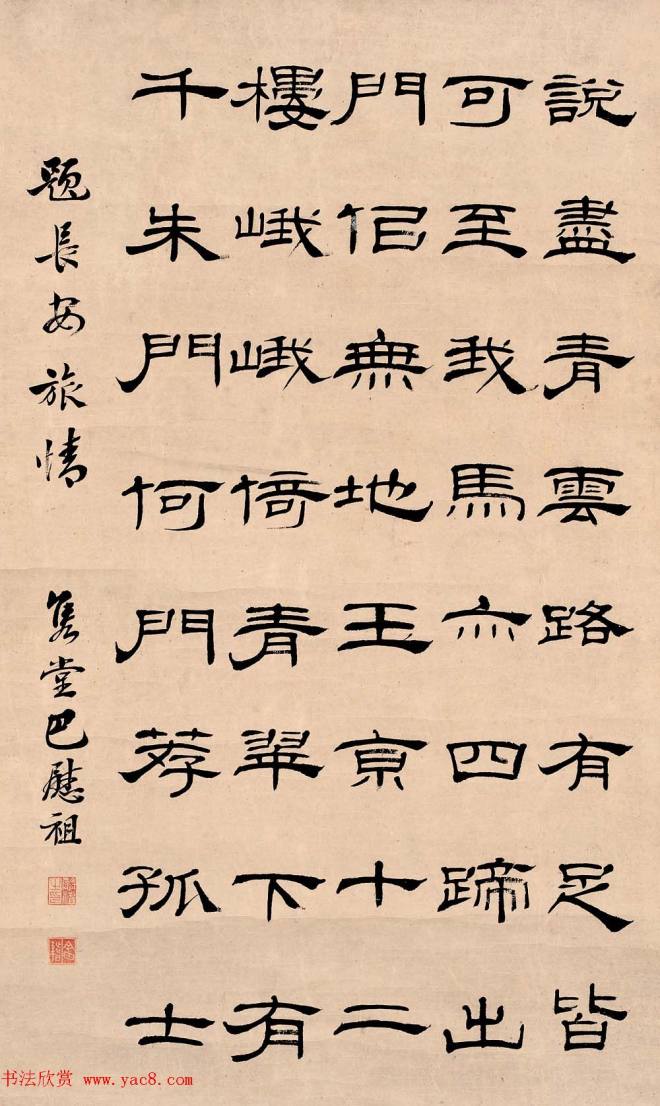 說盡青雲路有足皆
可至我馬亦四蹄出
門侣無地王京十二
樓峨峨倚青翠下有
千朱門何門荐孤士
題長安旅情
雋堂巴慰祖
书法欣赏 www.yac8.com